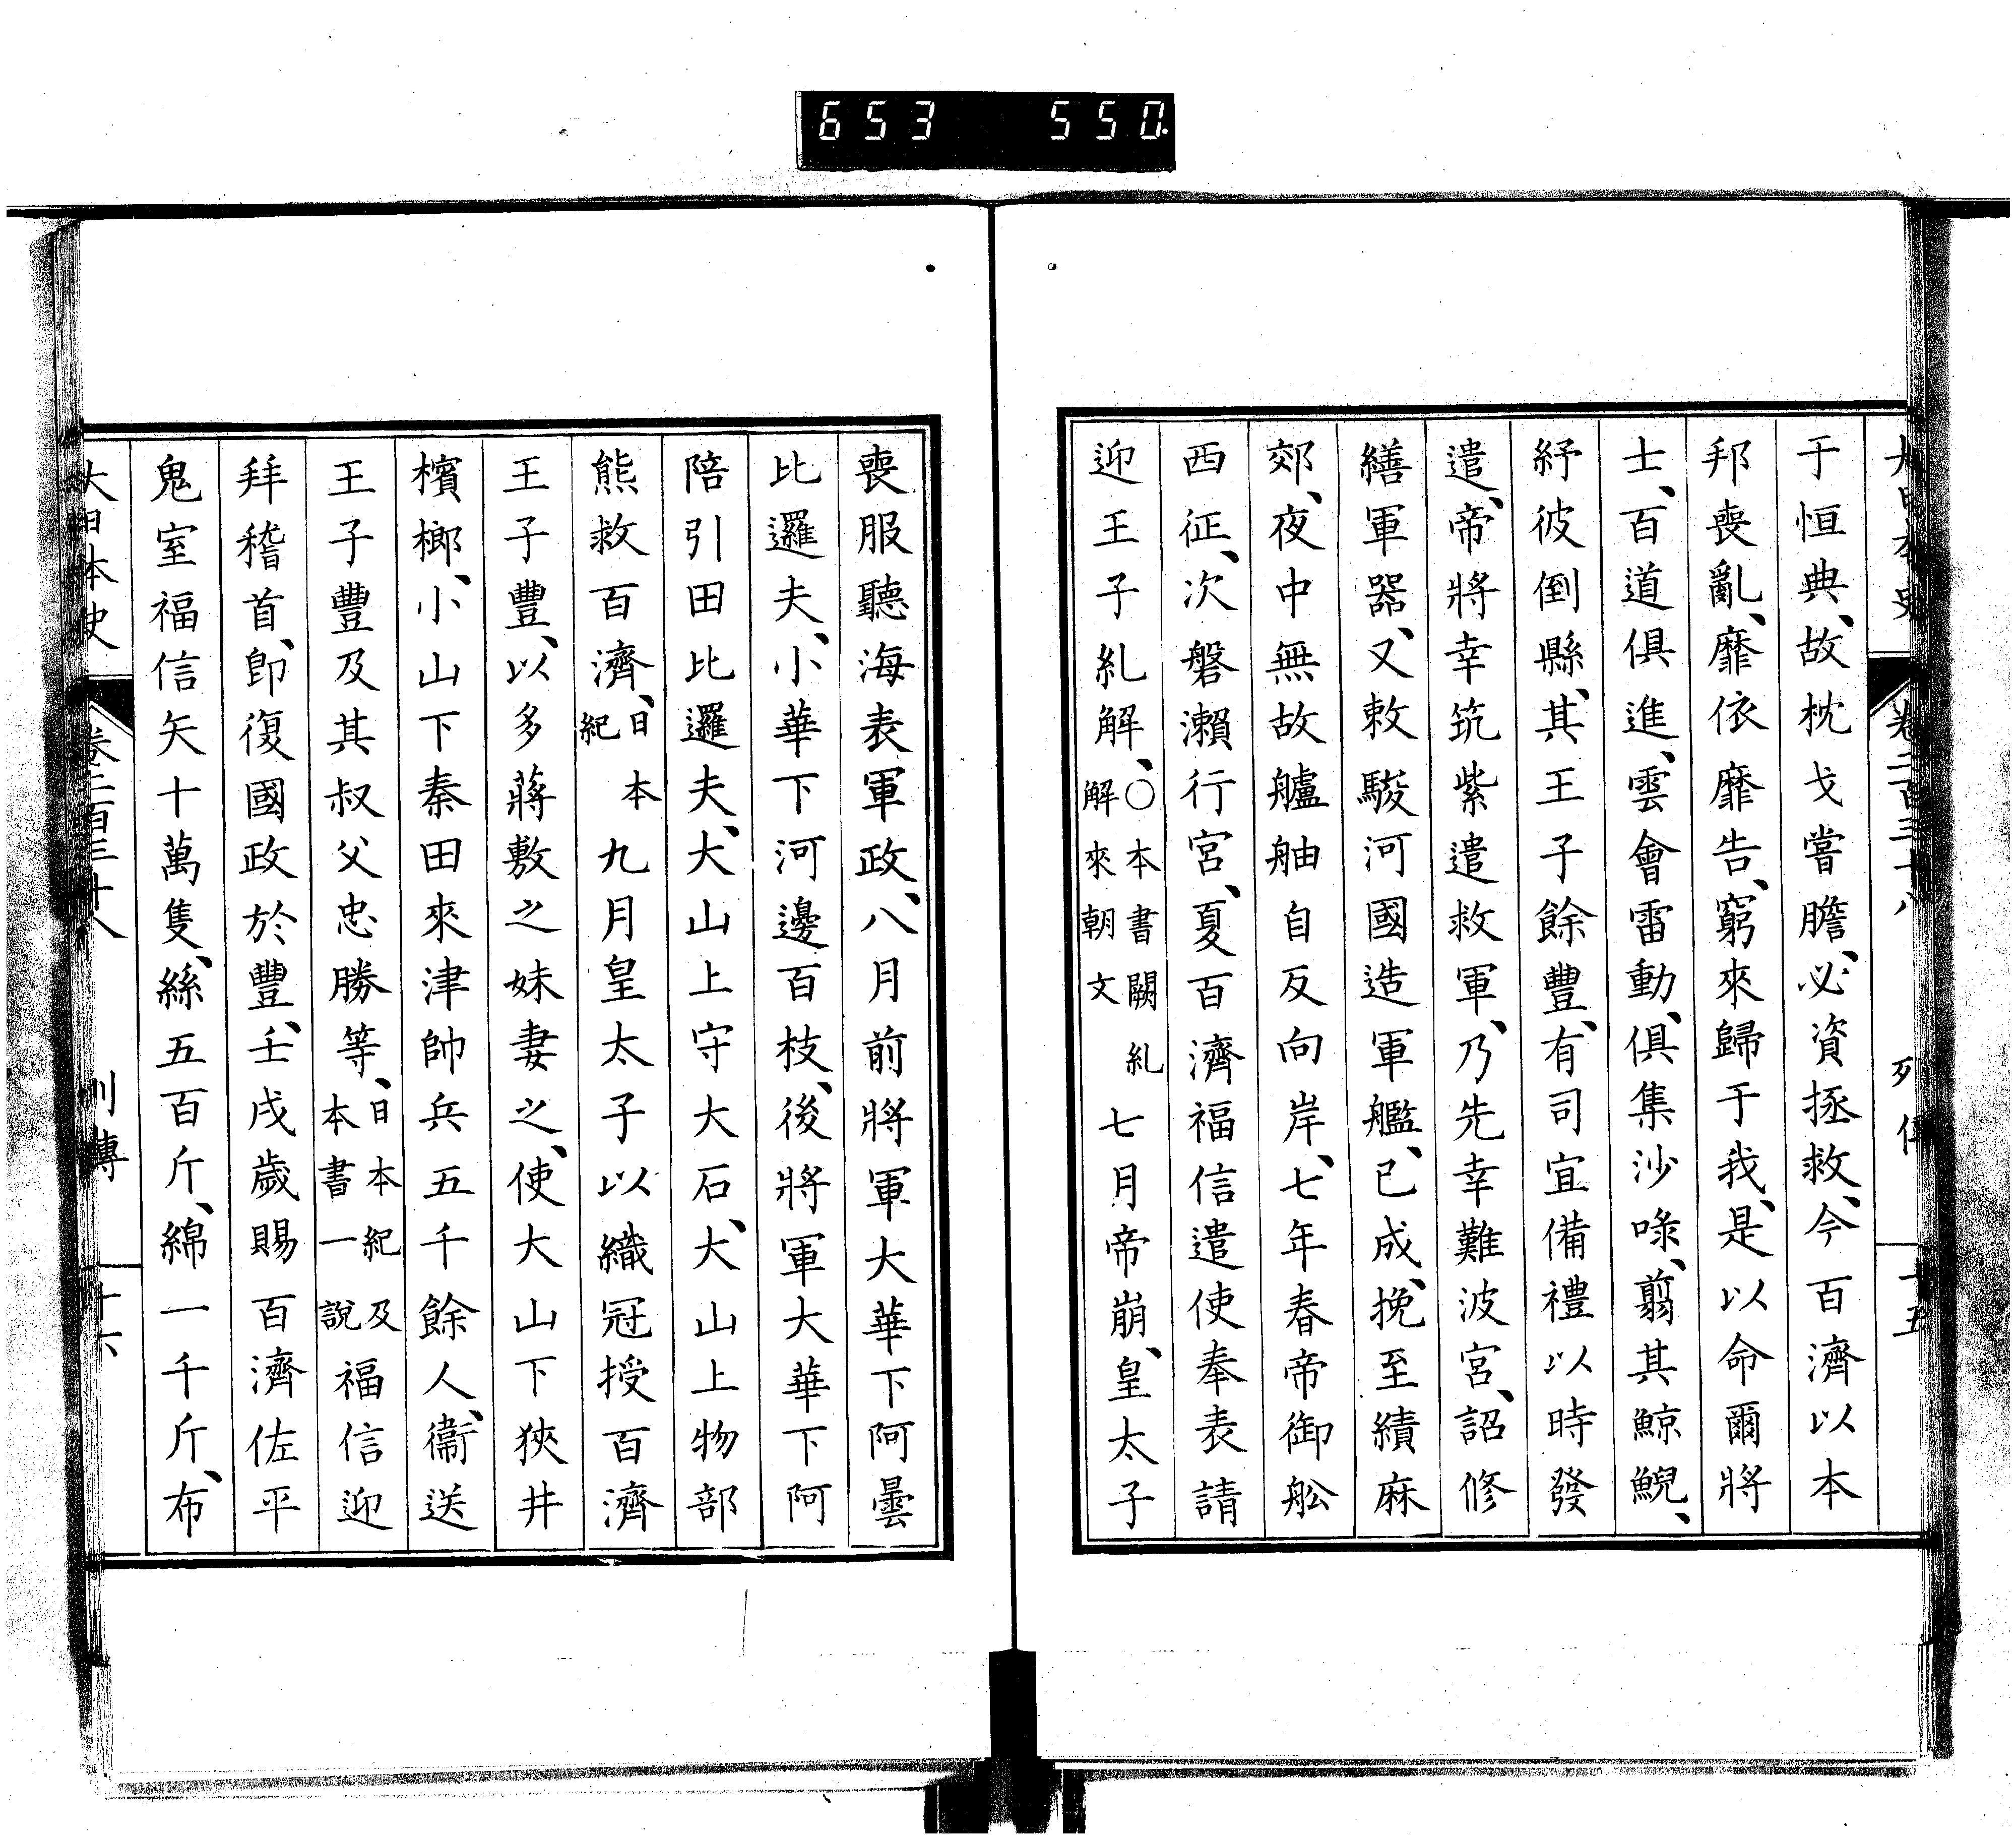 653 550.
大日本史 卷二百三十八 列傳 十五
于恒典、故枕戈嘗膽、必資拯救、今百濟以本
邦喪亂、靡依靡告、窮來歸于我、是以命爾將
士、百道俱進、雲會雷動、俱集沙㖨、翦其鯨鯢、
紓彼倒縣、其王子餘豐、有司宜備禮以時發
遣、帝將幸筑紫遣救軍、乃先幸難波宮、詔修
繕軍器、又敕駿河國造軍艦、已成、挽至績麻
郊、夜中無故艫舳自反向岸、七年春帝御舩
西征、次磐瀨行宮、夏百濟福信遣使奉表請
迎王子糺解、〇本書闕糺解來朝文七月帝崩、皇太子
喪服聽海表軍政、八月前將軍大華下阿曇
比邏夫、小華下河邊百枝、後將軍大華下阿
陪引田比邏夫、大山上守大石、大山上物部
熊救百濟、日本紀九月皇太子以織冠授百濟
王子豐、以多蔣敷之妹妻之、使大山下狹井
檳榔、小山下秦田來津帥兵五千餘人、衞送
王子豐及其叔父忠勝等、日本紀及本書一說福信迎
拜稽首、卽復國政於豐、壬戌歲賜百濟佐平
鬼室福信矢十萬隻、絲五百斤、綿一千斤、布
大日本史 卷二百三十八 列傳 十六